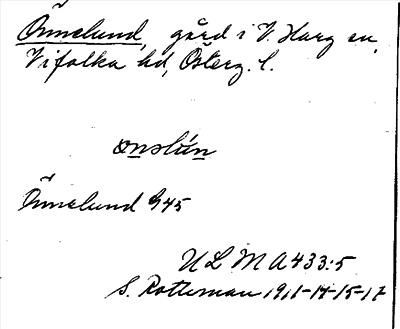 Önnelund, gård i V. Harg sn,
Vifolka hd, Österg. l.
ønslún
Önnelund G45
ULMA 433:5
S. Rotheman 1911-14-15-17